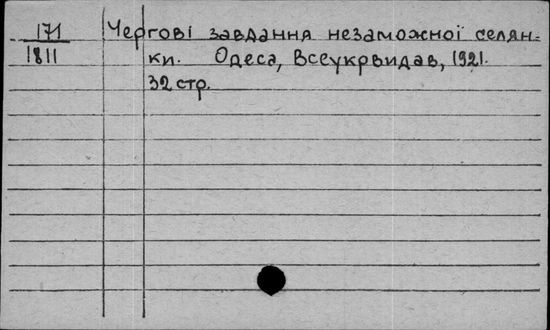 171
1811
Чергові завдання незаможної селян-
ки. Одеса, Всеукрвидав, 1921.
32 стр.